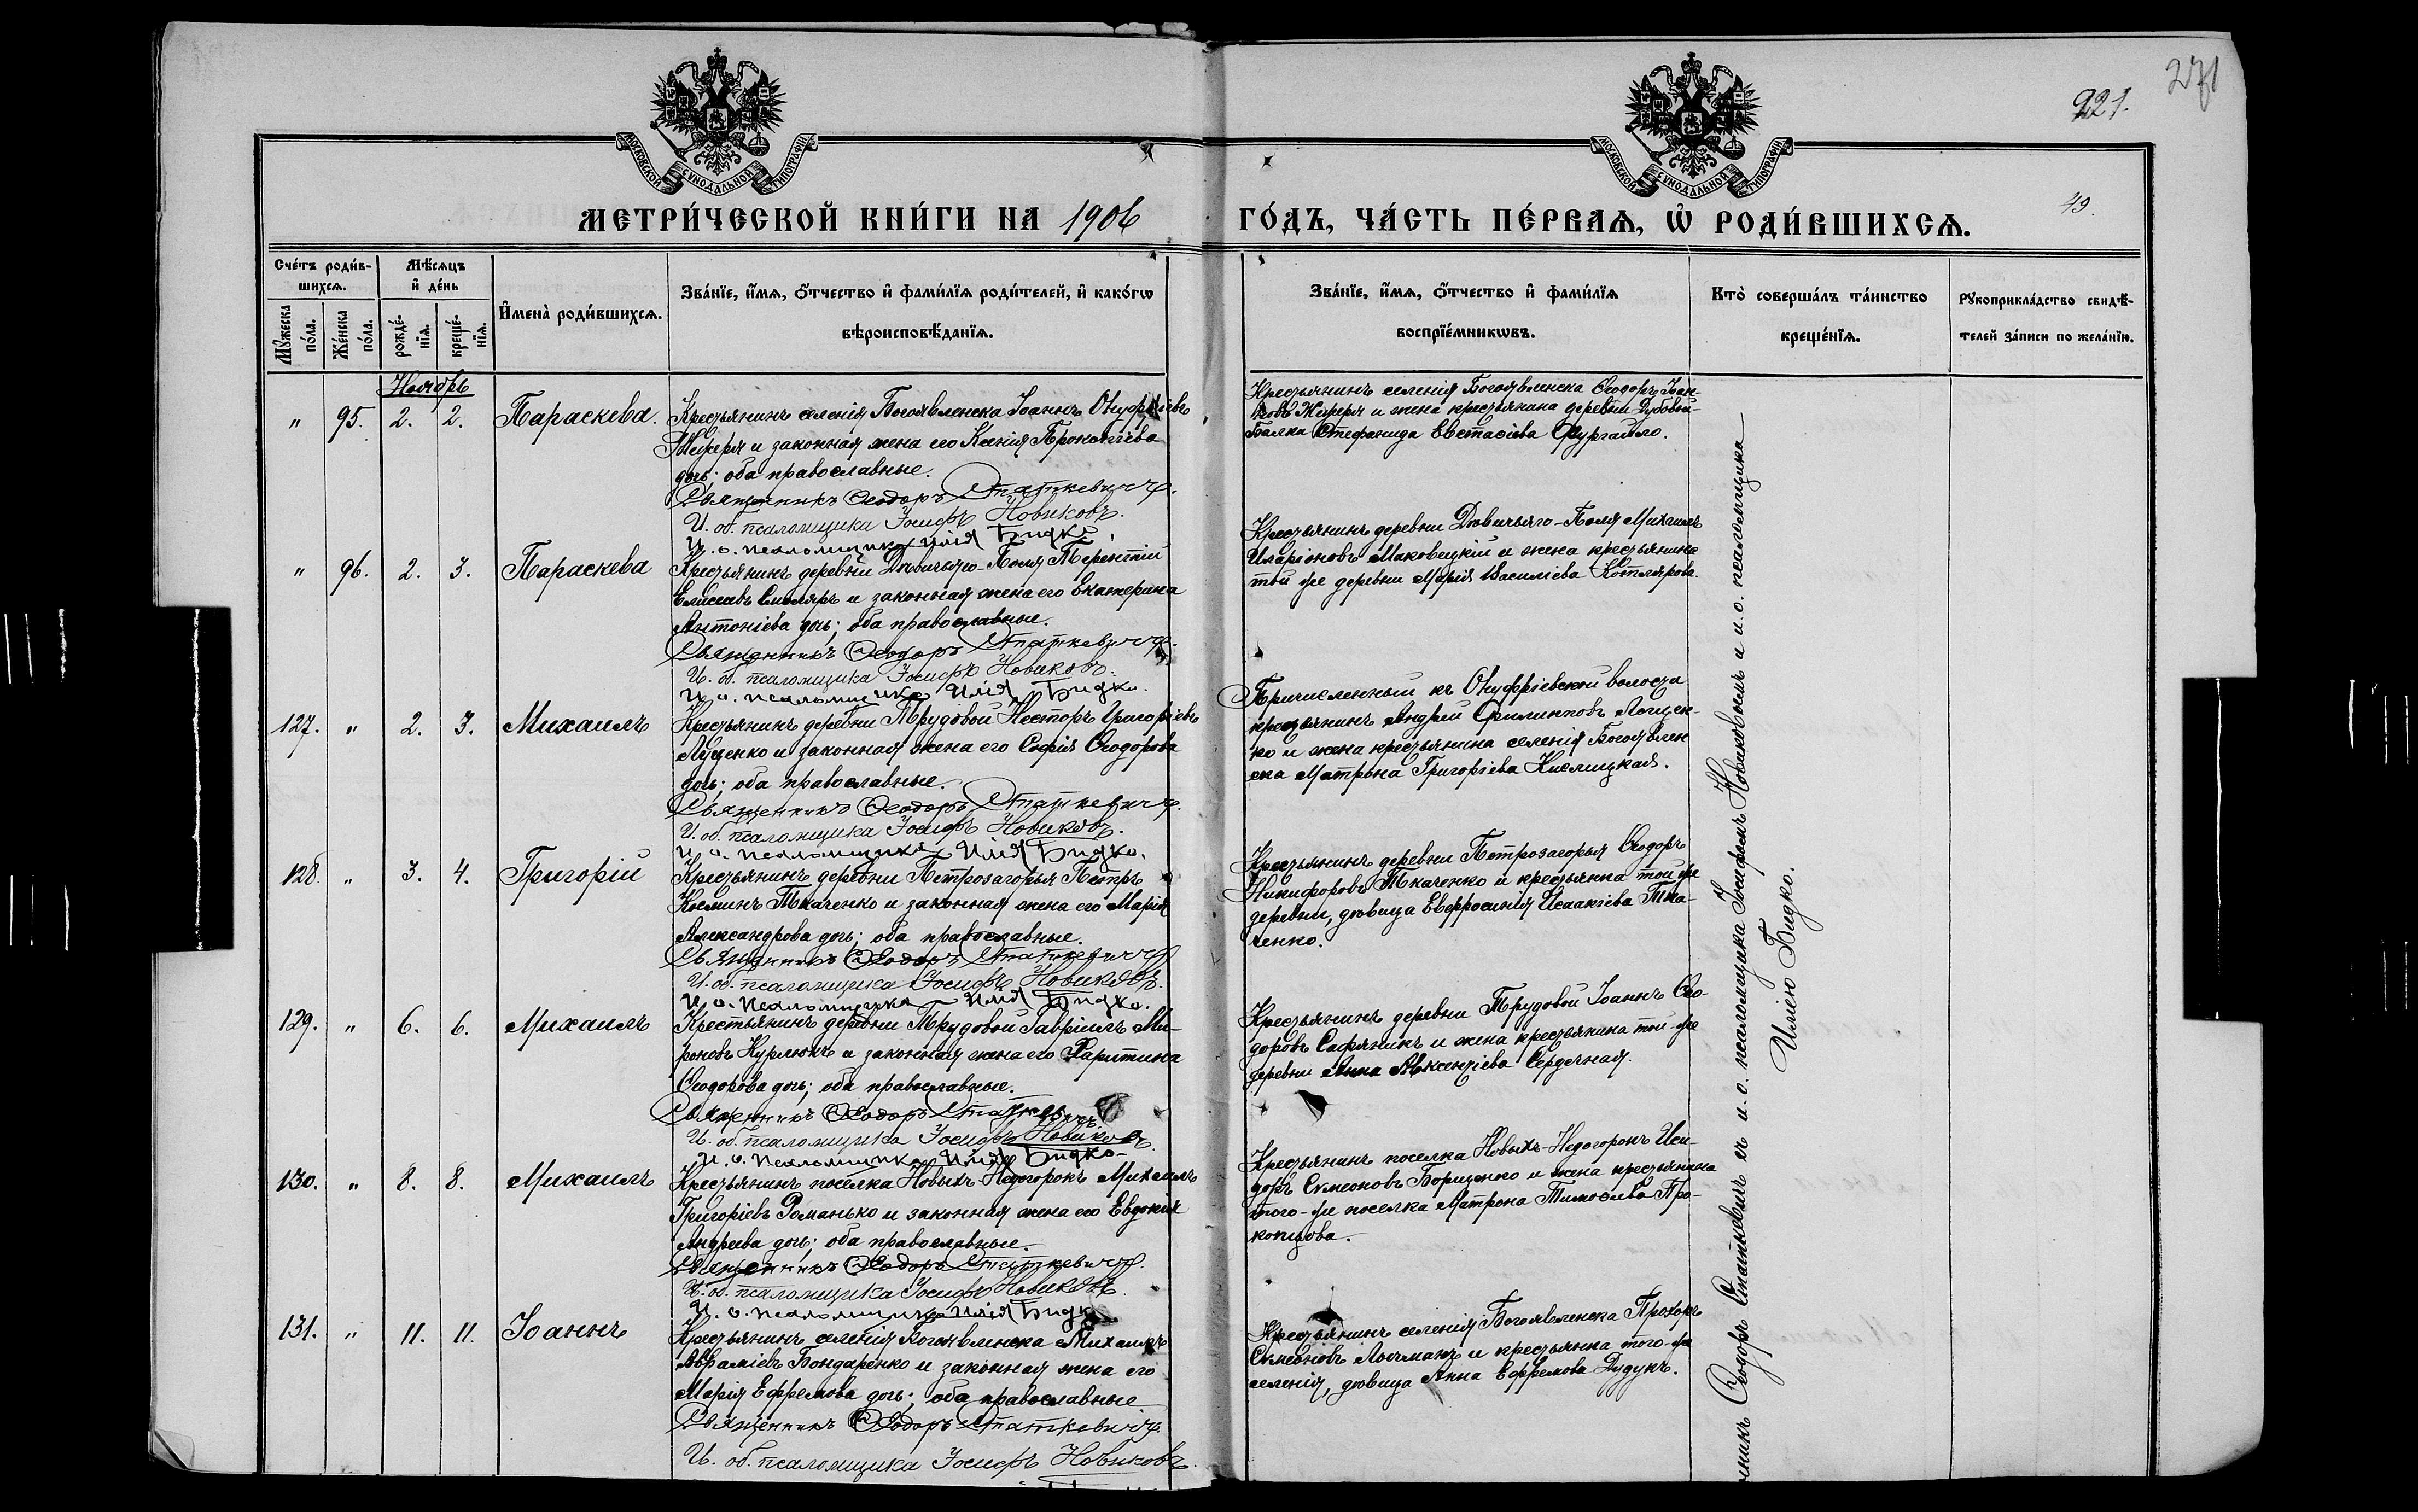 271
221.
49.
МОСКОВСКОЙ СѴНОДАЛЬНОЙ ТИПОГРАФІИ
МОСКОВСКОЙ СѴНОДАЛЬНОЙ ТИПОГРАФІИ
МЕТРИ́ЧЕСКОЙ КНИ́ГИ НА 1906 ГО́ДЪ, ЧА́СТЬ ПЕ́РВАѦ, Ѡ҆ РОДИ́ВШИХСѦ.
Сче́тъ роди́в-
шихсѧ.
Мꙋжеска по́ла.
Же́нска по́ла.
Мѣ́сѧцъ
и҆ де́нь
рожде́-нїѧ.
креще́-нїѧ.
И҆мена̀ роди́вшихсѧ.
Зва́нїе, и҆́мѧ, ѻ҆́тчество и҆ фами́лїѧ роди́телей, и҆ како́гѡ
вѣроисповѣ́данїѧ.
Зва́нїе, и҆́мѧ, ѻ҆́тчество и҆ фами́лїѧ
воспрїе́мникѡвъ.
Кто̀ соверша́лъ та́инство
креще́нїѧ.
Рꙋкоприкла́дство свидѣ́-
телей за́писи по жела́нїю.
Ноябрь
" 95. 2. 2. Параскева.
Крестьянинъ селенія Богоявленска Іоаннъ Онуфріевъ
Жиферя и законная жена его Ксенія Прокопіева
дочь; оба православные.
Священникъ Ѳеодоръ Статкевичъ.
И. об. псаломщика Іосифъ Новиковъ.
И. о. псаломщика Илія Бидко.
Крестьянинъ селенія Богоявленска Ѳеодоръ Іоан-
новъ Жиферя и жена крестьянина деревни Дубовой-
Балка Стефанида Евстаѳіева Фургайло.
" 96. 2. 3. Параскева
Крестьянинъ деревни Дѣвичьяго-Поля Терентій
Елисеевъ Смоляръ и законная жена его Екатерина
Антоніева дочь; оба православные.
Священникъ Ѳеодоръ Статкевичъ.
И. об. псаломщика Іосифъ Новиковъ.
И. о. псаломщика Илія Бидко.
Крестьянинъ деревни Дѣвичьяго-Поля Михаилъ
Иларіоновъ Маковецкій и жена крестьянина
той же деревни Марія Василіева Котлярова.
127. " 2. 3. Михаилъ
Крестьянинъ деревни Трудовой Несторъ Григоріевъ
Луценко и законная жена его Софія Ѳеодорова
дочь; оба православные.
Священникъ Ѳеодоръ Статкевичъ.
И. об. псаломщика Іосифъ Новиковъ.
И. о. псаломщика Илія Бидко.
Причисленный къ Онуфріевской волости
крестьянинъ Андрей Филипповъ Логцен-
ко и жена крестьянина селенія Богоявлен
ска Матрона Григоріева Кислицкая.
128. " 3. 4. Григорій
Крестьянинъ деревни Петрозагорья Петръ
Косминъ Ткаченко и законная жена его Марія
Александрова дочь; оба православные.
Священникъ Ѳеодоръ Статкевичъ
И. об. псаломщика Іосифъ Новиковъ.
И. о. псаломщика Илія Бидко.
Крестьянинъ деревни Петрозагорья Ѳеодоръ
Никифоровъ Ткаченко и крестьянка той же
деревни, дѣвица Евфросинія Исаакіева Тка-
ченко.
129. " 6. 6. Михаилъ
Крестьянинъ деревни Трудовой Гавріилъ Ми-
роновъ Курлюкъ и законная жена его Харитина
Ѳеодорова дочь; оба православные.
Священникъ Ѳеодоръ Статкевичъ
И. об. псаломщика Іосифъ Новиковъ.
И. о. псаломщика Илія Бидко.
Крестьянинъ деревни Трудовой Іоаннъ Ѳео-
доровъ Сафяникъ и жена крестьянина той-же
деревни Анна Авксентіева Сердечная.
130. " 8. 8. Михаилъ
Крестьянинъ поселка Новыхъ-Недогорокъ Михаилъ
Григоріевъ Романько и законная жена его Евдокія
Андреева дочь; оба православные.
Священникъ Ѳеодоръ Статкевичъ.
И. об. псаломщика Іосифъ Новиковъ.
И. о. псаломщика Илія Бидко
Крестьянинъ поселка Новыхъ-Недогорокъ Иси-
доръ Симеоновъ Борщенко и жена крестьянина
того-же поселка Матрона Тимоѳеева Про-
копцова.
131. " 11. 11. Іоаннъ
Крестьянинъ селенія Богоявленска Михаилъ
Авраміевъ Бондаренко и законная жена его
Марія Ефремова дочь; оба православные
Священникъ Ѳеодоръ Статкевичъ.
И. об. псаломщика Іосифъ Новиковъ.
Крестьянинъ селенія Богоявленска Прохоръ
Симеоновъ Лычманъ и крестьянка того-же
селенія, дѣвица Анна Ефремова Дудукъ.
Ѳеодоръ Статкевичъ съ и. о. псаломщика Іосифомъ Новиковымъ и и. о. псаломщика
Иліею Бидко.